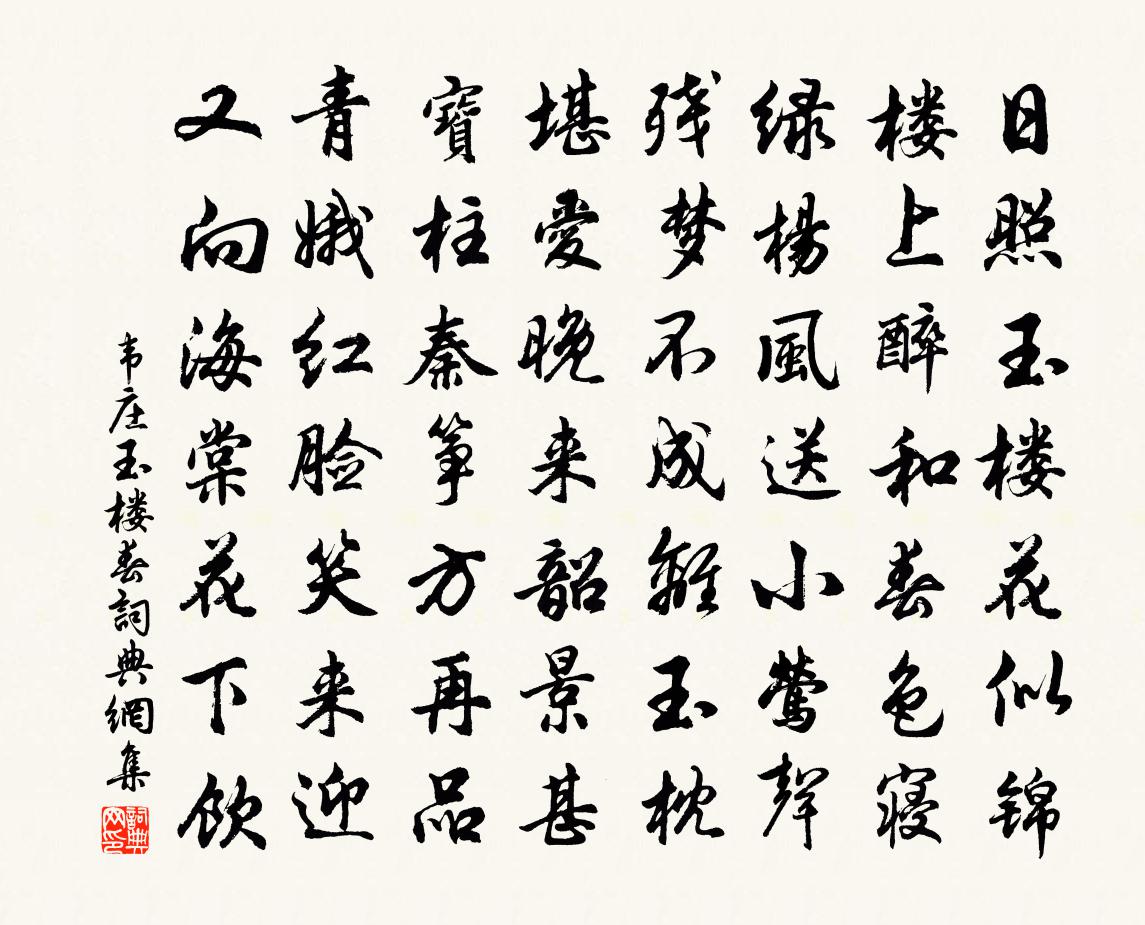 日照玉楼花似锦
楼上醉和春色寝
绿楊風送小莺聲
残梦不成離玉枕
堪愛晚来韶景甚
寶柱秦筝方再品
青娥红脸笑来迎
又向海棠花下飲
韦庄玉楼春詞典網集
詞典网印